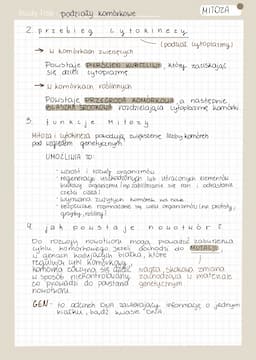 podziały komórkowe
MITOZA
2. przebieg cytokinezy
(podział cytoplazmy)
→ w komórkach zwierzęcych
Powstaje PIERŚCIEŃ KURCZLIWY, który zaciskając
się dzieli cytoplazmę
→ w komórkach roślinnych
Powstaje PRZEGRODA KOMÓRKOWA, a następnie
BLASZKA ŚRODKOWA rozdzielająca cytoplazmę komórki
3. funkcje mitozy
Mitoza i cytokineza powodują zwiększenie liczby komórek
pod względem genetycznym
UMOŻLIWIA TO:
- wzrost i rozwój organizmów
- regenerację uszkodzonych lub utraconych elementów
budowy organizmu (np. zabliźnianie się ran i odrastanie
części ciała)
- wymianę zużytych komórek na nowe
- bezpłciowe rozmnażanie się wielu organizmów (np. protisty,
grzyby, rośliny)
4. jak powstaje nowotwór?
Do rozwoju nowotworu mogą prowadzić zaburzenia
cyklu komórkowego. Jeżeli dochodzi do MUTACJI,
w genach kodujących białka, które
regulują cykl komórkowy,
komórka zaczyna się dzielić
w sposób niekontrolowany,
co prowadzi do powstania
nowotworu.
nagła, skokowa zmiana
zachodząca w materiale
genetycznym
GEN - to odcinek DNA zawierający informację o jednym
białku, bądź kwasie RNA.